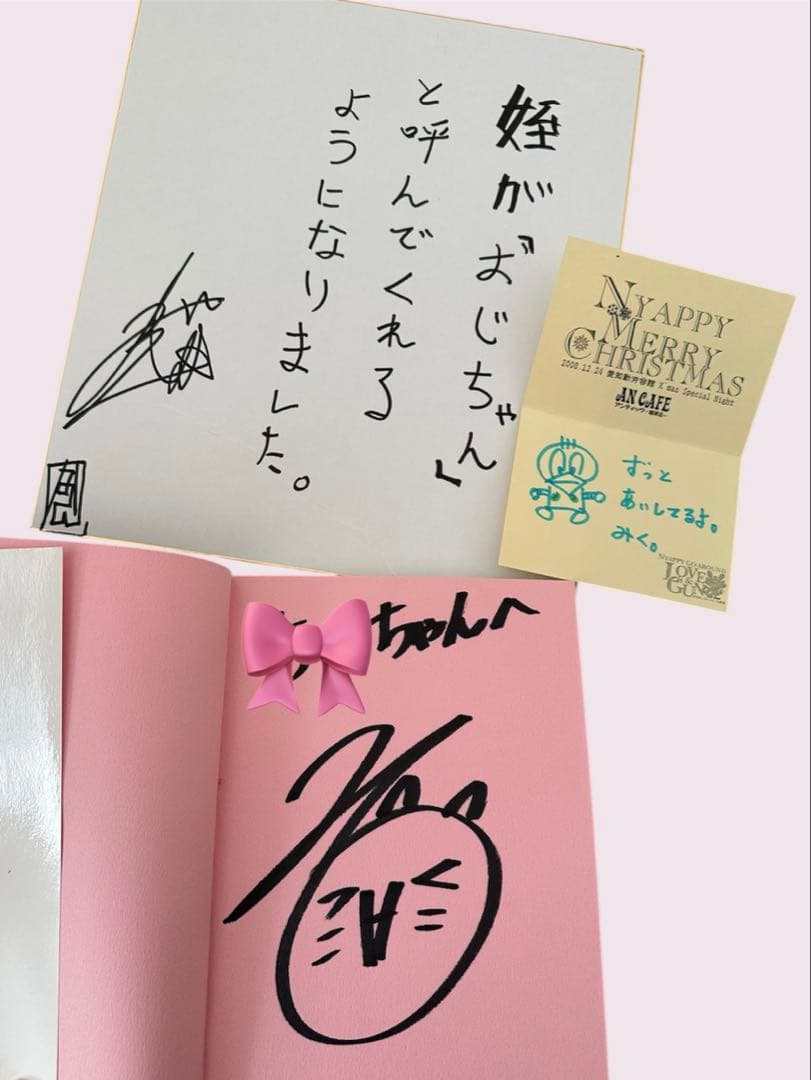 姪が「おじちゃん」
と呼んでくれる
ようになりました。
NYAPPY
MERRY
CHRISTMAS
2008.11.24 愛知勤労会館 X'mas Special Night
AN CAFE
アンティック-珈琲店-
ずっと
あいしてるよ。
みく。
NYAPPY GO AROUND
LOVE
&
GUN
ちゃんへ